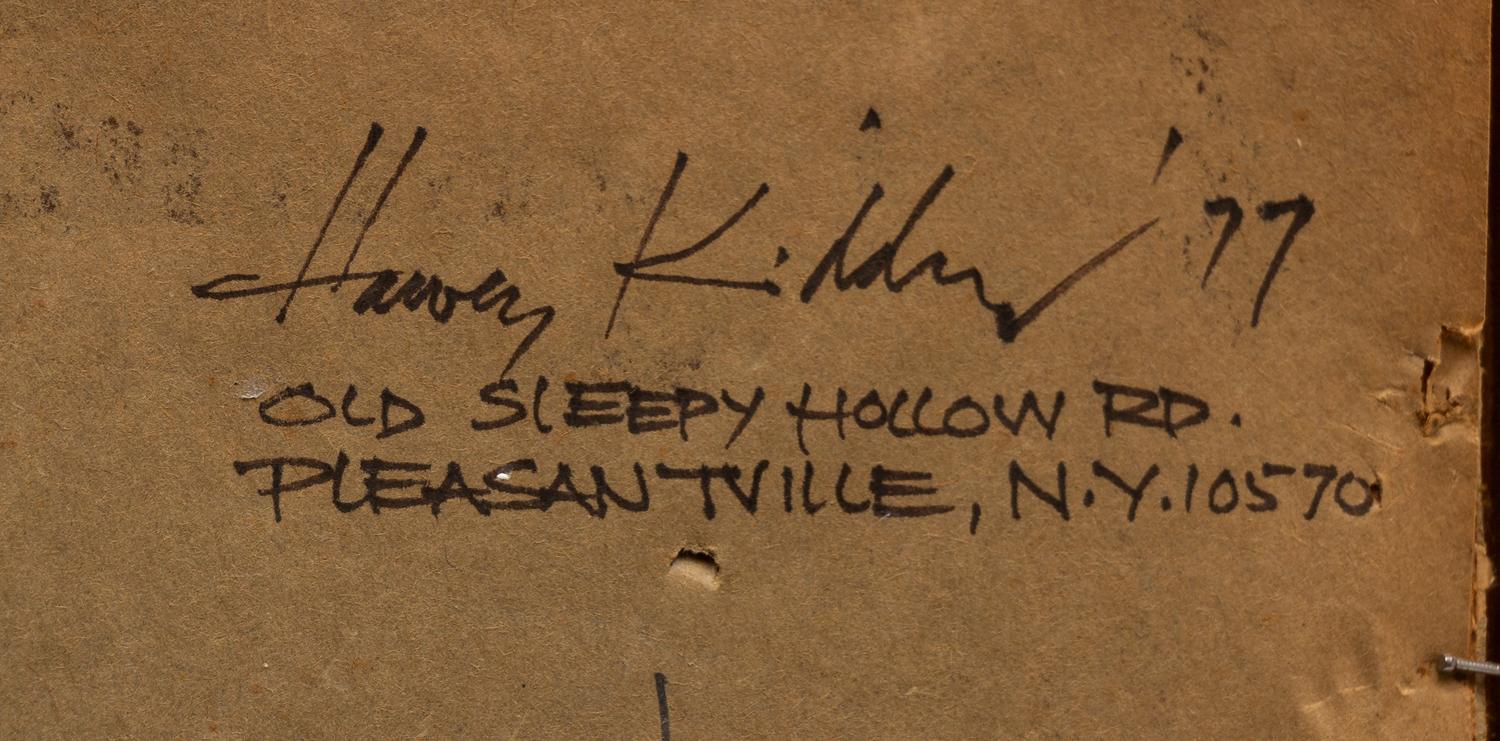 Harvey Kidder '77
OLD SLEEPY HOLLOW RD.
PLEASANTVILLE, N.Y. 10570